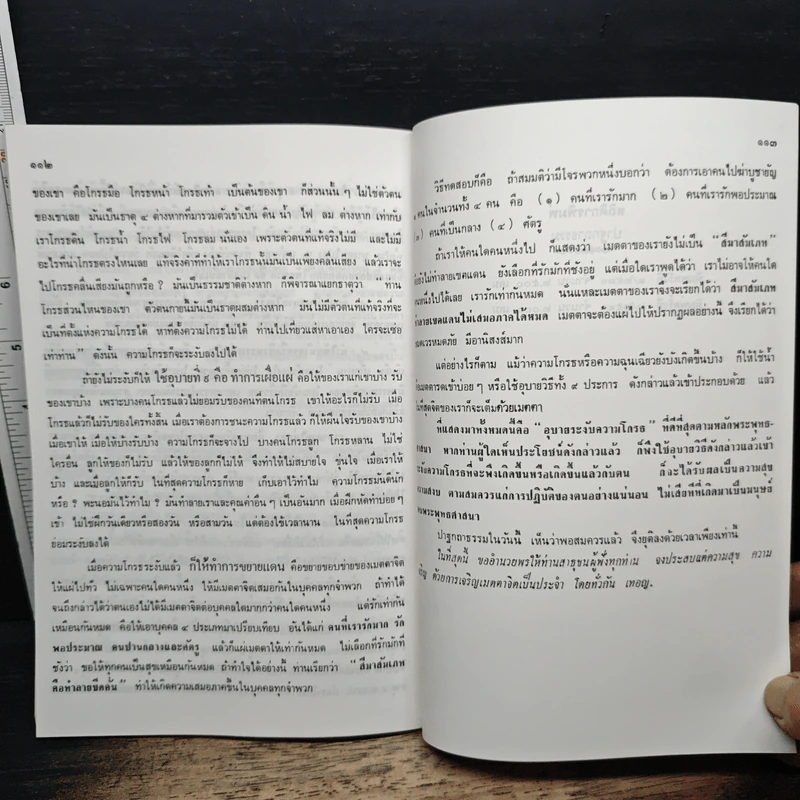 ๑๑๒
ของเขา คือโกรธมือ โกรธหน้า โกรธเท้า เป็นต้นของเขา ก็ส่วนนั้น ๆ ไม่ใช่ตัวตน
ของเขาเลย มันเป็นธาตุ ๔ ต่างหากที่มารวมตัวเข้าเป็น ดิน น้ำ ไฟ ลม ต่างหาก เท่ากับ
เราโกรธดิน โกรธน้ำ โกรธไฟ โกรธลม นั่นเอง เพราะตัวตนที่แท้จริงไม่มี และไม่มี
อะไรที่น่าโกรธตรงไหนเลย แท้จริงคำที่ทำให้เราโกรธนั้นมันเป็นเพียงคลื่นเสียง แล้วเราจะ
ไปโกรธคลื่นเสียงมันถูกหรือ ? มันเป็นธรรมชาติต่างหาก ก็พิจารณาแยกธาตุว่า "ท่าน
โกรธส่วนไหนของเขา ตัวตนกายนี้มันเป็นธาตุผสมต่างหาก มันไม่มีตัวตนที่แท้จริงที่จะ
เป็นที่ตั้งแห่งความโกรธได้ หาที่ตั้งความโกรธไม่ได้ ท่านไปเที่ยวแส่หาเอาเอง ใครจะช่อ
เท่าท่าน" ดังนั้น ความโกรธก็จะระงับลงไปได้
ถ้ายังไม่ระงับก็ให้ ใช้อุบายที่ ๙ คือ ทำการเผื่อแผ่ คือให้ของเราแก่เขาบ้าง รับ
ของเขาบ้าง เพราะบางคนโกรธแล้วไม่ยอมรับของคนที่ตนโกรธ เขาให้อะไรก็ไม่รับ เมื่อ
โกรธแล้วก็ไม่รับของใครทั้งสิ้น เมื่อเราต้องการชนะความโกรธแล้ว ก็ให้ฝืนใจรับของเขาบ้าง
เมื่อเขาให้ เมื่อเราให้เขาบ้าง ให้บ้างรับบ้าง ความโกรธก็จะจางไป บางคนโกรธลูก โกรธหลาน ไม่ใช่
ใครอื่น ลูกให้ของก็ไม่รับ แล้วให้ของลูกก็ไม่ให้ จึงทำให้ไม่สบายใจ ขุ่นใจ เมื่อเราให้
บ้าง และเมื่อลูกให้ก็รับ ในที่สุดความโกรธก็หาย เก็บเอาไว้ทำไม ความโกรธมันดีนัก
หรือ ? พะนอมันไว้ทำไม ? มันทำลายเราและคุณค่าอื่น ๆ เป็นอันมาก เมื่อฝึกหัดทำบ่อย ๆ
เข้า ไม่ใช่ฝึกวันเดียวหรือสองวัน หรือสามวัน แต่ต้องใช้เวลานาน ในที่สุดความโกรธ
ย่อมระงับลงได้
เมื่อความโกรธระงับแล้ว ก็ให้ทำการขยายแดน คือขยายขอบข่ายของเมตตาจิต
ให้แผ่ไปทั่ว ไม่เฉพาะคนใดคนหนึ่ง ให้มีเมตตาจิตเสมอกันในบุคคลทุกจำพวก ถ้าทำได้
จนถึงกล่าวได้ว่าตนเองไม่ได้มีเมตตาจิตต่อบุคคลใดมากกว่าคนใดคนหนึ่ง แต่รักเท่ากัน
เหมือนกันหมด คือให้เอาบุคคล ๔ ประเภทมาเปรียบเทียบ อันได้แก่ คนที่เรารักมาก รัก
พอประมาณ คนปานกลางและศัตรู แล้วก็แผ่เมตตาให้เท่ากันหมด ไม่เลือกที่รักมักที่
ชังว่า ขอให้ทุกคนเป็นสุขเหมือนกันหมด ถ้าทำใจได้อย่างนี้ ท่านเรียกว่า "สีมาสัมเภท
คือทำลายขีดคั่น" ทำให้เกิดความเสมอภาคขึ้นในบุคคลทุกจำพวก
๑๑๓
วิธีทดสอบก็คือ ถ้าสมมติว่ามีโจรพวกหนึ่งบอกว่า ต้องการเอาคนไปฆ่าบูชายัญ
คนในจำนวนทั้ง ๔ คน คือ (๑) คนที่เรารักมาก (๒) คนที่เรารักพอประมาณ
คนที่เป็นกลาง (๔) ศัตรู
ถ้าเราให้คนใดคนหนึ่งไป ก็แสดงว่า เมตตาของเรายังไม่เป็น "สีมาสัมเภท"
ยังไม่ทำลายเขตแดน ยังเลือกที่รักมักที่ชังอยู่ แต่เมื่อใดเราพูดได้ว่า เราไม่อาจให้คนใด
คนหนึ่งไปได้เลย เรารักเท่ากันหมด นั่นแหละเมตตาของเราจึงจะเรียกได้ว่า สีมาสัมเภท
ทำลายเขตแดนไม่เสมอภาคได้หมด เมตตาจะต้องแผ่ไปให้ปรากฏผลอย่างนี้ จึงเรียกได้ว่า
เวรหมดภัย มีอานิสงส์มาก
แต่อย่างไรก็ตาม แม้ว่าความโกรธหรือความฉุนเฉียวยังบังเกิดขึ้นบ้าง ก็ให้ใช้น้ำ
เมตตารดเข้าบ่อย ๆ หรือใช้อุบายวิธีทั้ง ๙ ประการ ดังกล่าวแล้วเข้าประกอบด้วย แล้ว
ในที่สุดจิตของเราก็จะเต็มด้วยเมตตา
ที่แสดงมาทั้งหมดนี้คือ "อุบายระงับความโกรธ" ที่ดีที่สุดตามหลักพระพุทธ-
ศาสนา หากท่านผู้ใดเห็นประโยชน์ดังกล่าวแล้ว ก็พึงใช้อุบายวิธีดังกล่าวแล้วเข้า
ระงับความโกรธที่จะพึงเกิดขึ้นหรือเกิดขึ้นแล้วกับตน ก็จะได้รับผลเป็นความสุข
ความสงบ ตามสมควรแก่การปฏิบัติของตนอย่างแน่นอน ไม่เสียทีที่เกิดมาเป็นมนุษย์
พบพระพุทธศาสนา
ปาฐกถาธรรมในวันนี้ เห็นว่าพอสมควรแล้ว จึงยุติลงด้วยเวลาเพียงเท่านี้
ในที่สุดนี้ ขออำนวยพรให้ท่านสาธุชนผู้ฟังทุกท่าน จงประสบแต่ความสุข ความ
เจริญ ด้วยการเจริญเมตตาจิตเป็นประจำ โดยทั่วกัน เทอญ.